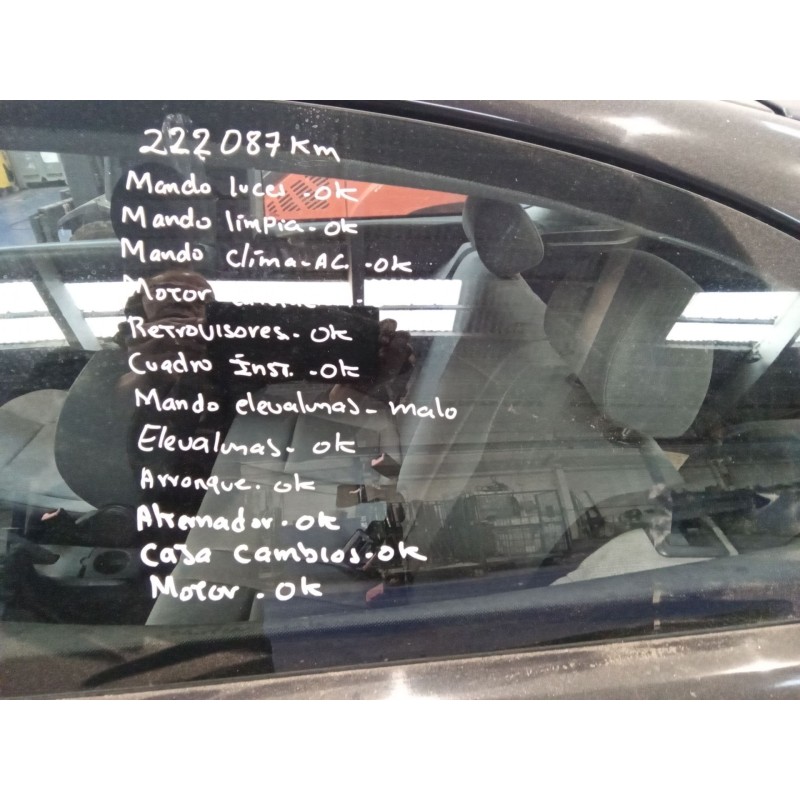 222087 Km
Mando luces - ok
Mando limpia - ok
Mando clima - AC. - ok
Motor
Retrovisores - ok
Cuadro Inst. - ok
Mando elevalunas - malo
Elevalunas - ok
Arranque - ok
Alternador - ok
Caja cambios - ok
Motor - ok